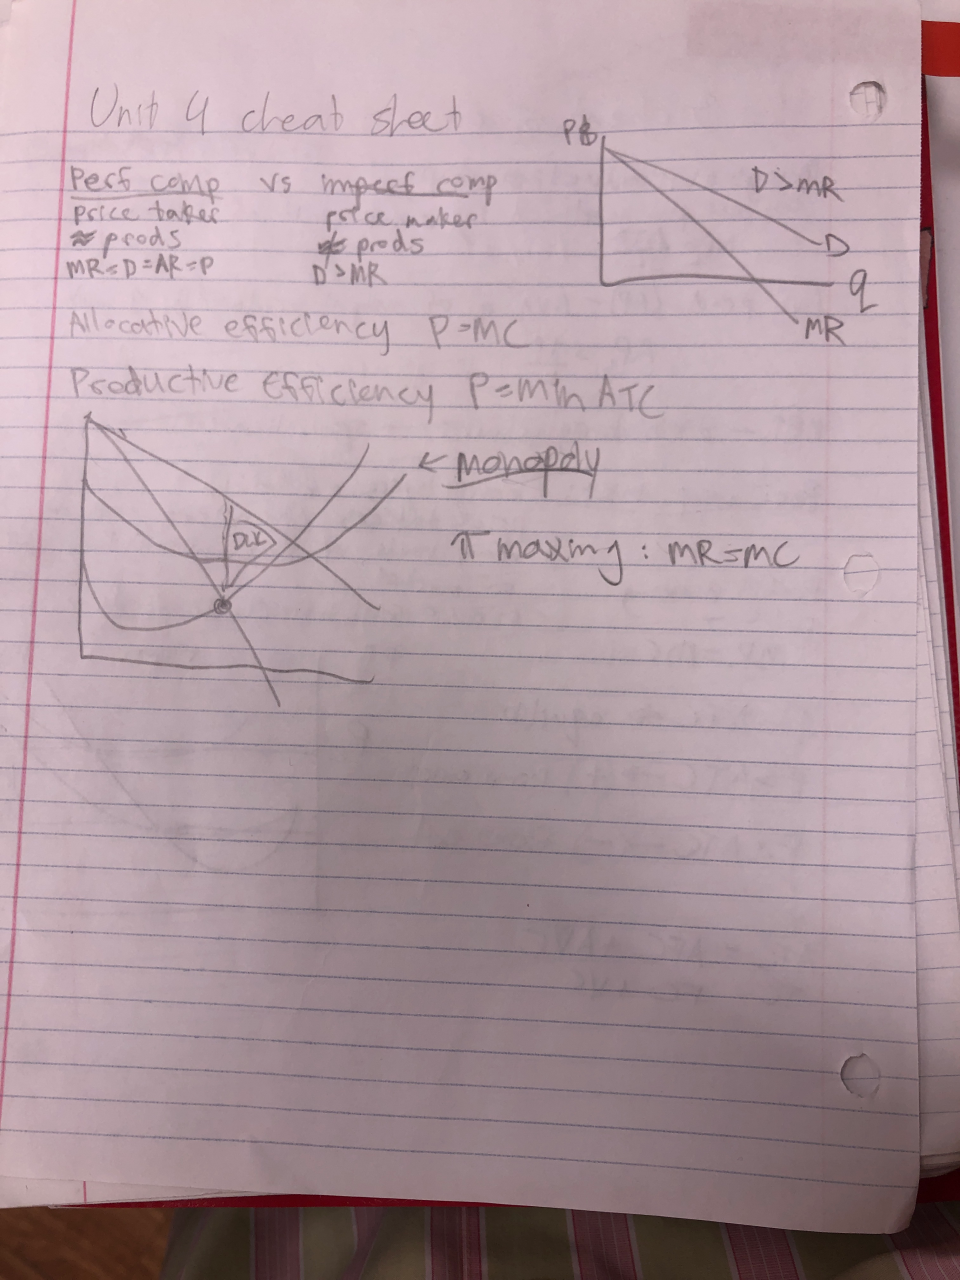 Unit 4 cheat sheet
Perf comp vs imperf comp
price taker price maker
≈ prods ≠ prods
MR=D=AR=P D>MR
P$
D>MR
D
Q
MR
Allocative efficiency P=MC
Productive Efficiency P=min ATC
← Monopoly
DWL
π maxing: MR=MC